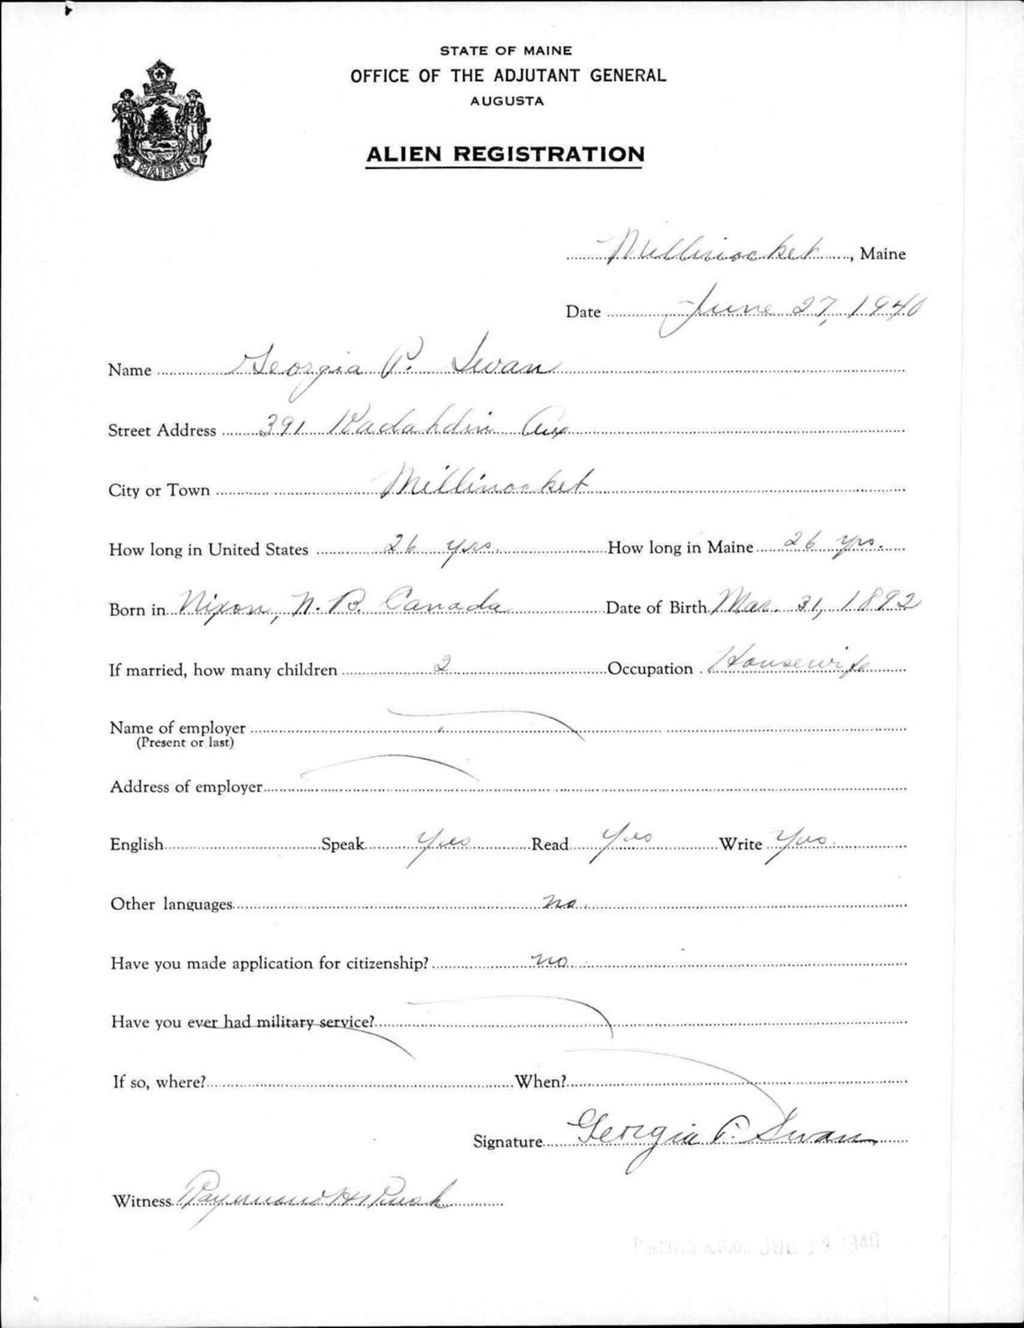 STATE OF MAINE
OFFICE OF THE ADJUTANT GENERAL
AUGUSTA
ALIEN REGISTRATION
MAINE
Millinocket, Maine
Date June 27, 1940
Name Georgia P. Swan
Street Address 391 Katahdin Ave
City or Town Millinocket
How long in United States 26 yrs. How long in Maine 26 yrs.
Born in Nixon, N.B. Canada Date of Birth Mar. 31, 1892
If married, how many children 2 Occupation Housewife
Name of employer
(Present or last)
Address of employer
English Speak Yes Read Yes Write Yes
Other languages no
Have you made application for citizenship? no
Have you ever had military service?
If so, where? When?
Signature Georgia P. Swan
Witness Raymond H. Rush
A.G.O. JUL 13 1940